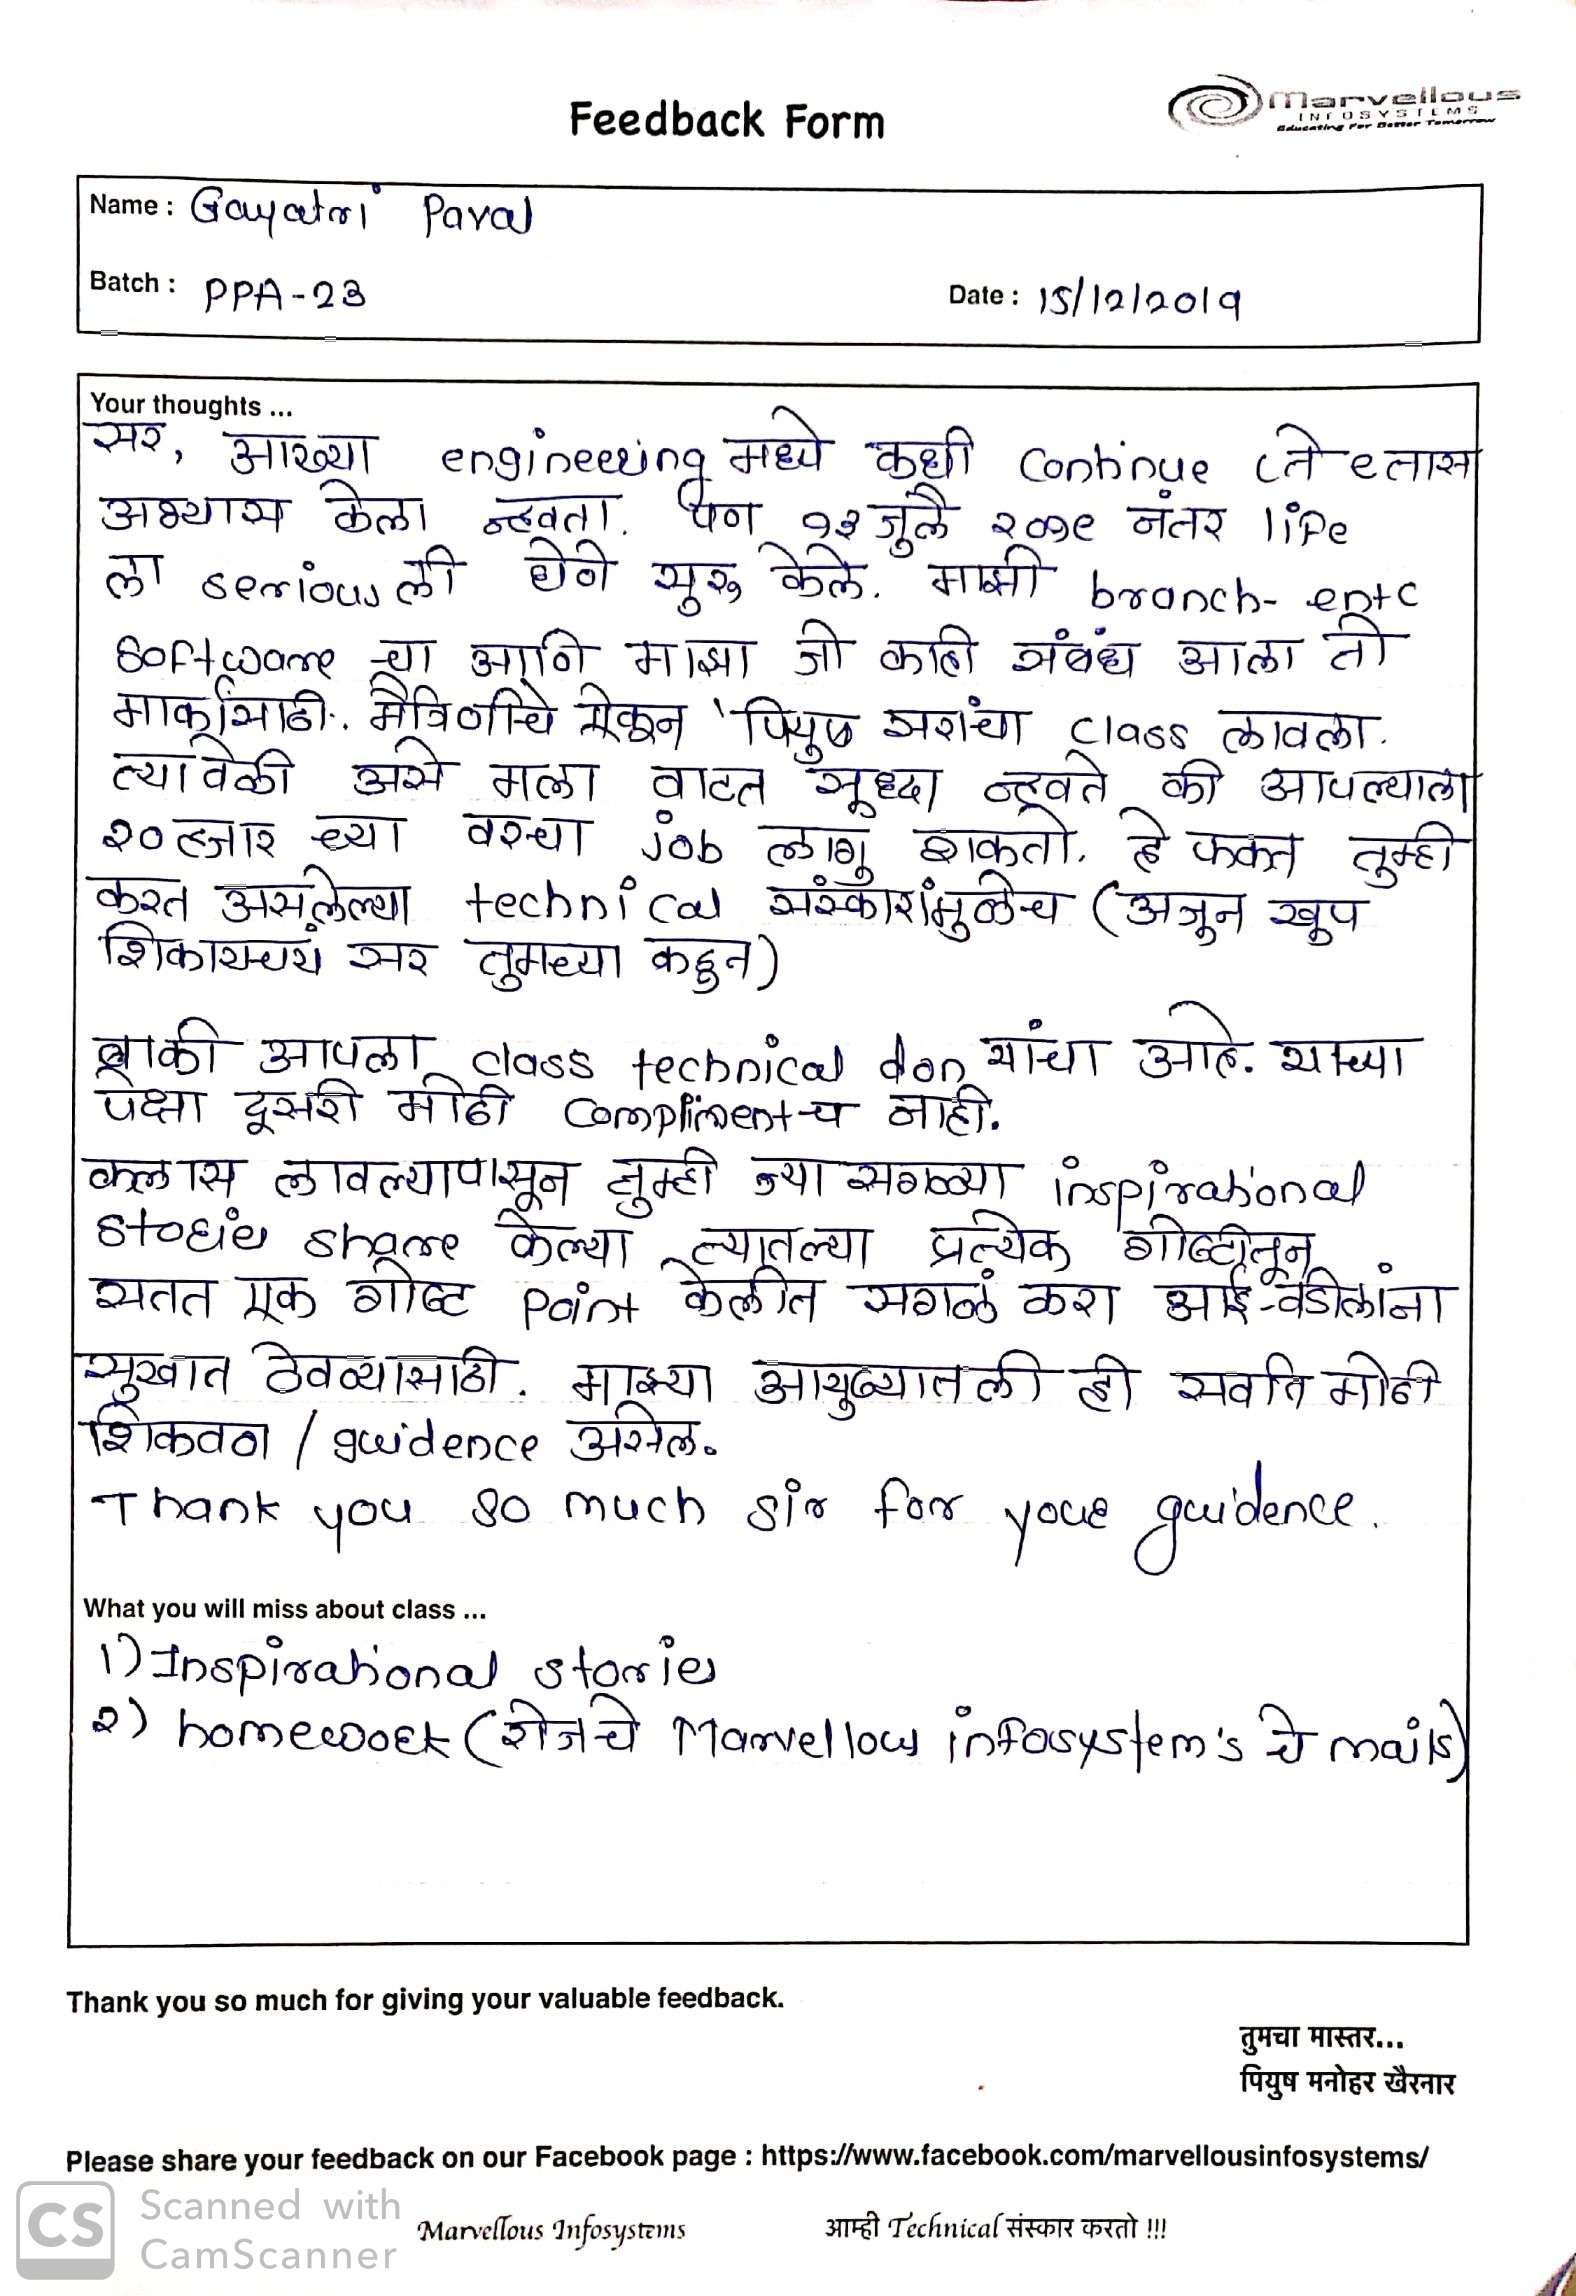 Feedback Form
Marvellous
INFOSYSTEMS
Educating For Better Tomorrow
Name : Gayatri Paval
Batch : PPA-23
Date : 15/12/2019
Your thoughts ...
सर, आख्या engineering मध्ये कधी continue ८ते ९तास
अभ्यास केला न्हवता. पण १३ जुलै २०१९ नंतर life
ला seriousली घेणे सुरु केले. माझी branch- entc
Software चा आणि माझा जो काही संबंध आला तो
मार्कांसाठी. मैत्रिणीचे ऐकून 'पियुष सरांचा class लावला.
त्यावेळी असे मला वाटत सूध्दा न्हवते की आपल्याला
२०हजार च्या वरचा job लागु शकतो. हे फक्त तुम्ही
करत असलेल्या technical संस्कारांमुळेच (अजून खूप
शिकायचयं सर तुमच्या कडून)
बाकी आपला class technical don यांचा आहे. याच्या
पेक्षा दूसरी मोठी compliment-च नाही.
क्लास लावल्यापासून तुम्ही ज्या सगळ्या inspirational
stories share केल्या त्यातल्या प्रत्येक गोष्टीतून
सतत एक गोष्ट point केलीत सगळं करा आई-वडीलांना
सुखात ठेवण्यासाठी. माझ्या आयुष्यातली ही सर्वात मोठी
शिकवण / guidence असेल.
Thank you so much sir for your guidence.
What you will miss about class ...
1) Inspirational stories
2) homework (रोजचे Marvellous infosystem's चे mails)
Thank you so much for giving your valuable feedback.
तुमचा मास्तर...
पियुष मनोहर खैरनार
Please share your feedback on our Facebook page : https://www.facebook.com/marvellousinfosystems/
CS Scanned with
CamScanner
Marvellous Infosystems
आम्ही Technical संस्कार करतो !!!